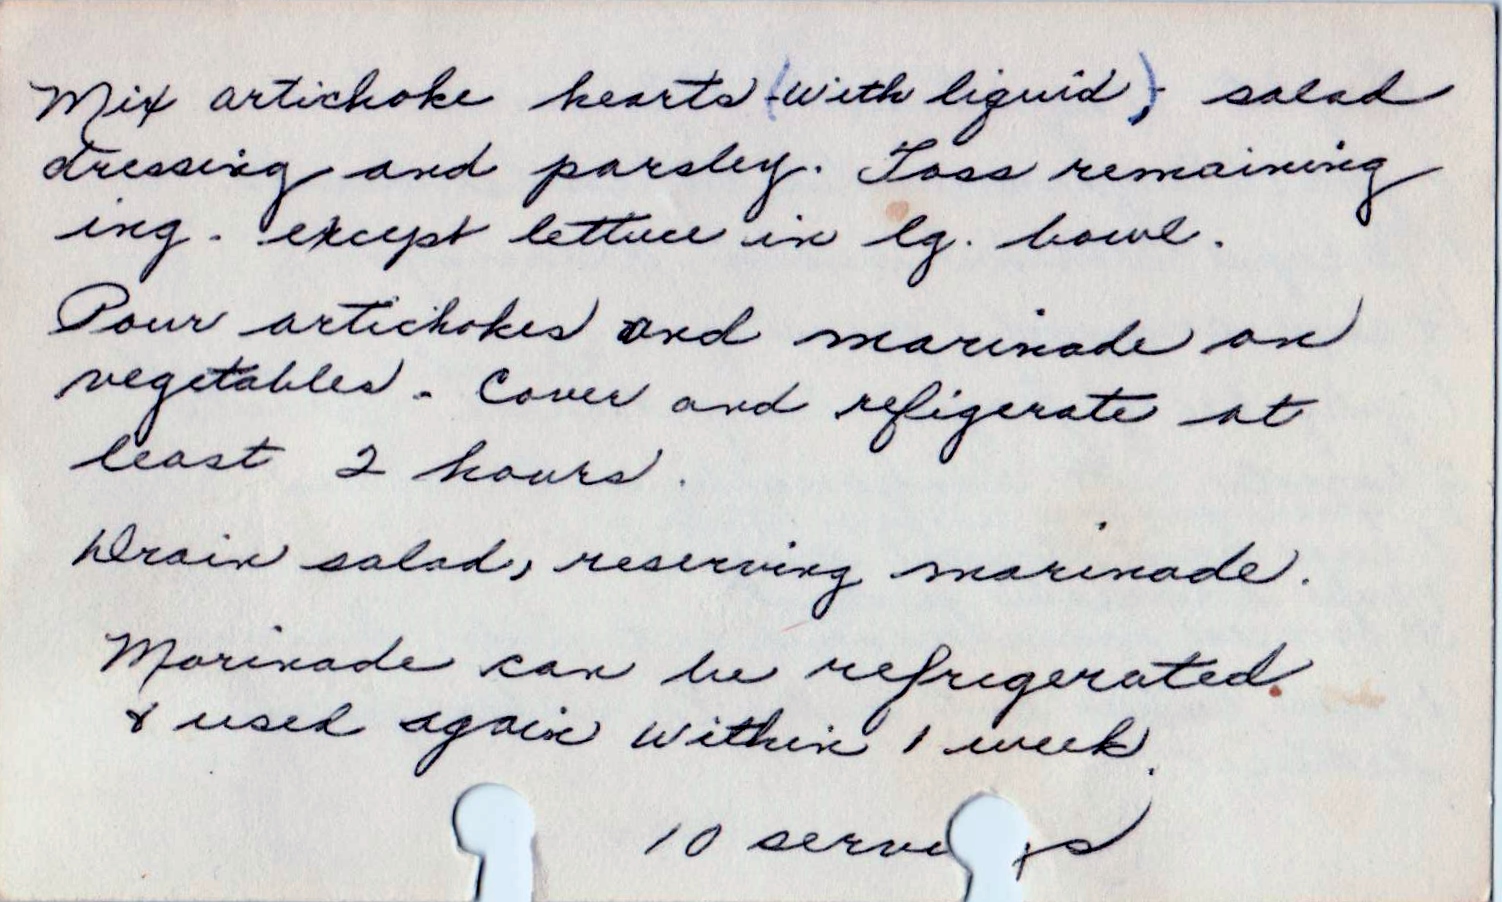 Mix artichoke hearts (with liquid), salad
dressing and parsley. Toss remaining
ing. except lettuce in lg. bowl.
Pour artichokes and marinade on
vegetables. Cover and refigerate at
least 2 hours.
Drain salad, reserving marinade.
Marinade can be refrigerated
& used again within 1 week.
10 servings